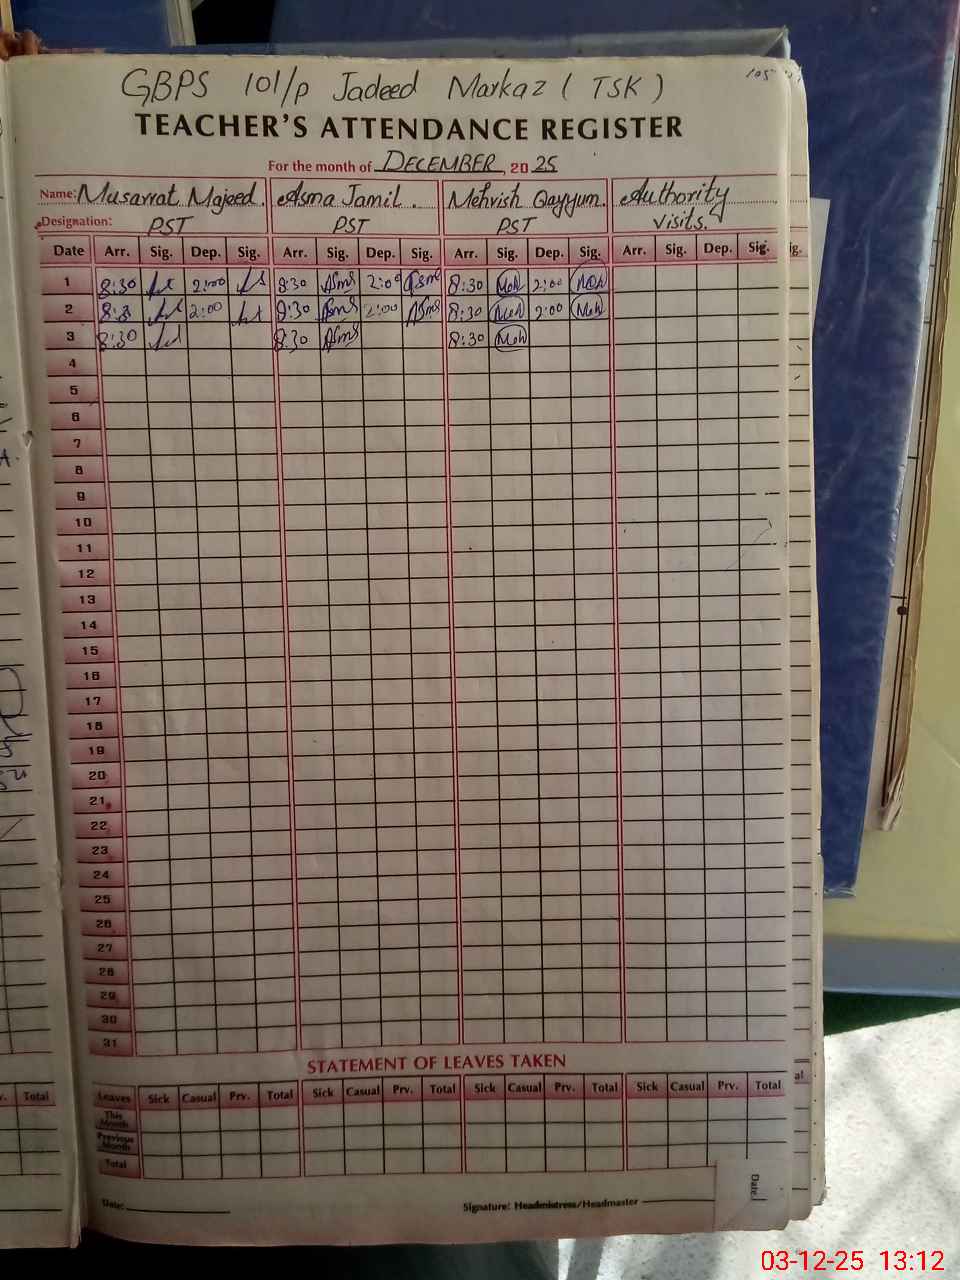 GBPS 101/P Jadeed Markaz ( TSK )
105
TEACHER'S ATTENDANCE REGISTER
For the month of DECEMBER, 2025
Name: Musarrat Majeed. Asma Jamil. Mehrish Qayyum. Authority
Designation: PST PST PST Visits.
Date Arr. Sig. Dep. Sig. Arr. Sig. Dep. Sig. Arr. Sig. Dep. Sig. Arr. Sig. Dep. Sig.
1 8:30 2:00 8:30 Asma 2:00 Asma 8:30 Meh 2:00 Meh
2 8:3 2:00 8:30 Asma 2:00 Asma 8:30 Meh 2:00 Meh
3 8:30 8:30 Asma 8:30 Meh
4
5
6
7
8
9
10
11
12
13
14
15
16
17
18
19
20
21
22
23
24
25
26
27
28
29
30
31
STATEMENT OF LEAVES TAKEN
Leaves Sick Casual Prv. Total Sick Casual Prv. Total Sick Casual Prv. Total Sick Casual Prv. Total
This Month
Previous Month
Total
Date:
Signature: Headmistress/Headmaster
Date
Total
03-12-25 13:12